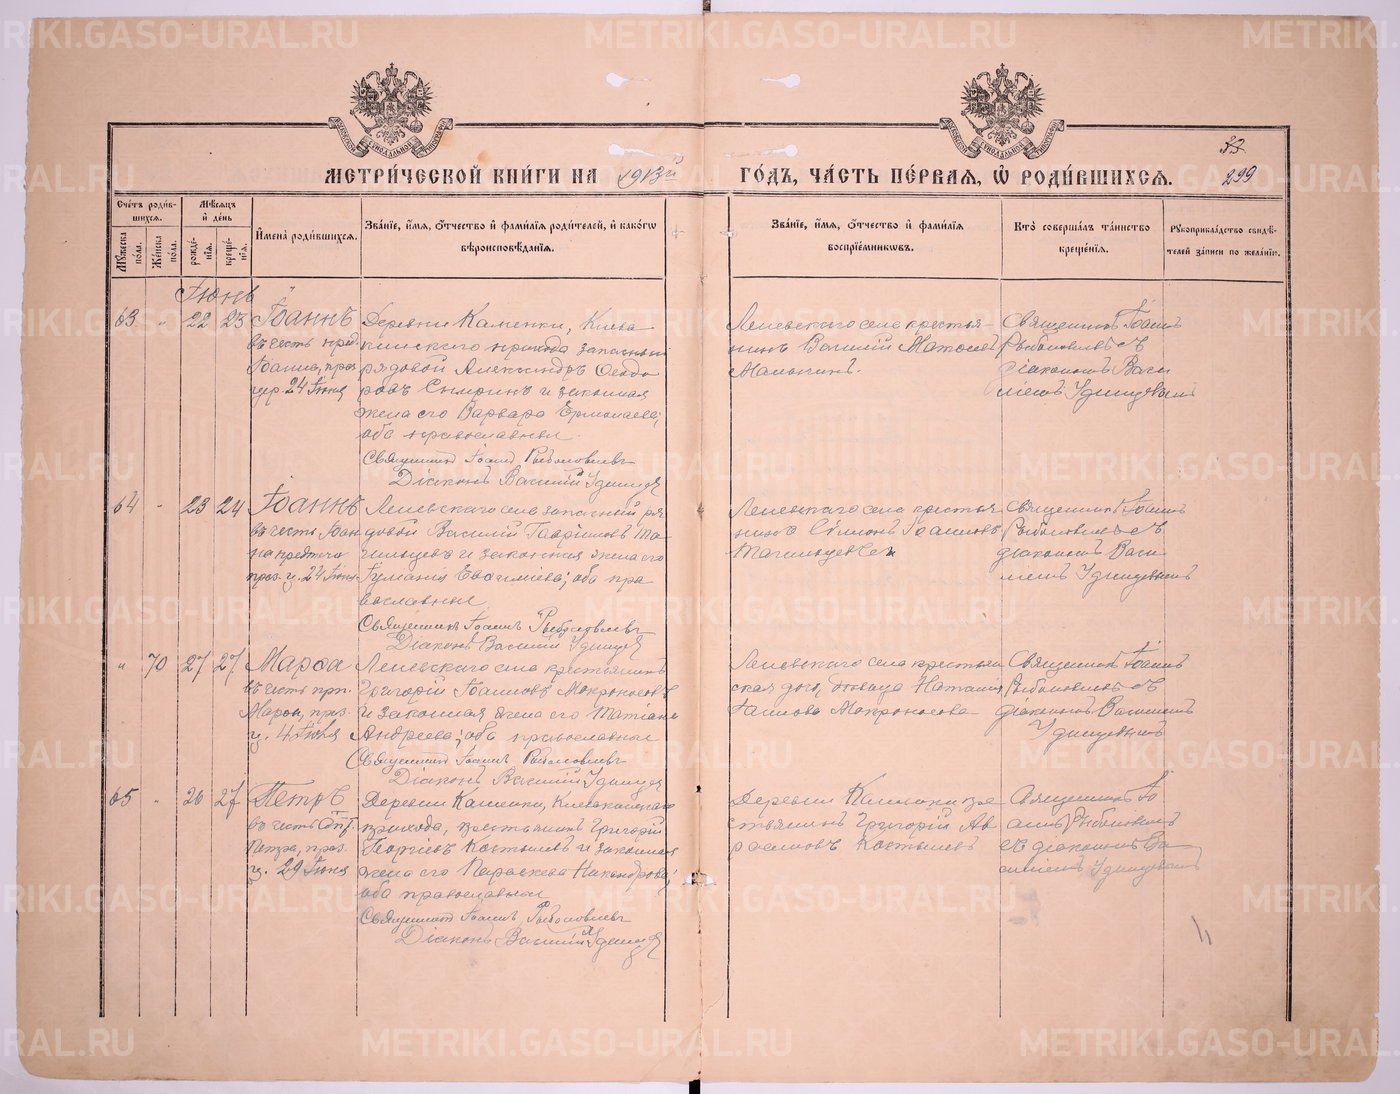 METRIKI.GASO-URAL.RU
33
299
МЕТРИ́ЧЕСКОЙ КНИ́ГИ НА 1913й ГО́ДЪ, ЧА́СТЬ ПЕ́РВАЯ, Ѽ РОДИ́ВШИХСЯ.
Сче́тъ роди́вшихся.
Му́жеска пола.
Же́нска пола.
Мѣ́сяцъ и҆ де́нь
рожде́нїѧ.
креще́нїѧ.
И҆мена̀ роди́вшихся.
Зва́нїе, и҆́мя, ѻ҆́тчество и҆ фами́лїѧ роди́телей, и҆ како́гѡ вѣроисповѣ́данїѧ.
Зва́нїе, и҆́мя, ѻ҆́тчество и҆ фами́лїѧ воспрїе́мникѡвъ.
Кто̀ соверша́лъ та́инство креще́нїѧ.
Рꙋкоприкла́дство свидѣ́телей за́писи по жела́нїю.
Іюнь
63 " 22 23 Іоаннъ
въ честь пред.
Іоанна, праз
24 Іюня
Деревни Каменки,
прихода запасный
рядовой Александръ Ѳеодо
ровъ и законная
жена его Варвара Ермолаева;
оба православные.
Священникъ Іоаннъ Рыболовлевъ
Діаконъ Василій Удинцев
Леневскаго села крестья-
нинъ Василій
Священникъ Іоаннъ
Рыболовлевъ съ
діакономъ Васи
ліемъ Удинцевымъ
64 " 23 24 Іоаннъ
въ честь Іоан
на предтечи
праз. ц. 24 Іюня
Леневскаго села запасный ря
довой Василій Гавриловъ Та
гильцевъ и законная жена его
Евѳиміева; оба пра
вославные
Священникъ Іоаннъ Рыболовлевъ
Діаконъ Василій Удинцев
Леневскаго села крестья
нинъ Симеонъ Іоанновъ
Тагильцевъ
Священникъ Іоаннъ
Рыболовлевъ съ
діакономъ Васи
ліемъ Удинцевымъ
" 70 27 27 Марѳа
въ честь прп.
Марѳы, праз.
ц. 4 Іюля
Леневскаго села крестьянинъ
Григорій Іоанновъ Мокроносовъ
и законная жена его Татіана
Андреева; оба православные
Священникъ Іоаннъ Рыболовлевъ
Діаконъ Василій Удинцев
Леневскаго села крестьян
ская дочь, девица Наталія
Мокроносова
Священникъ Іоаннъ
Рыболовлевъ съ
діакономъ Василіемъ
Удинцевымъ
65 " 26 27 Петръ
въ честь
Петра, праз.
ц. 29 Іюня
Деревни Каменки,
прихода, крестьянинъ Григорій
Георгіевъ Костылевъ и законная
жена его Параскева Никандрова;
оба православные
Священникъ Іоаннъ Рыболовлевъ
Діаконъ Василій Удинцев
Деревни Каменки кре
стьянинъ Григорій
Костылевъ
Священникъ Іо
аннъ Рыболовлевъ
съ діакономъ Ва
силіемъ Удинцевымъ